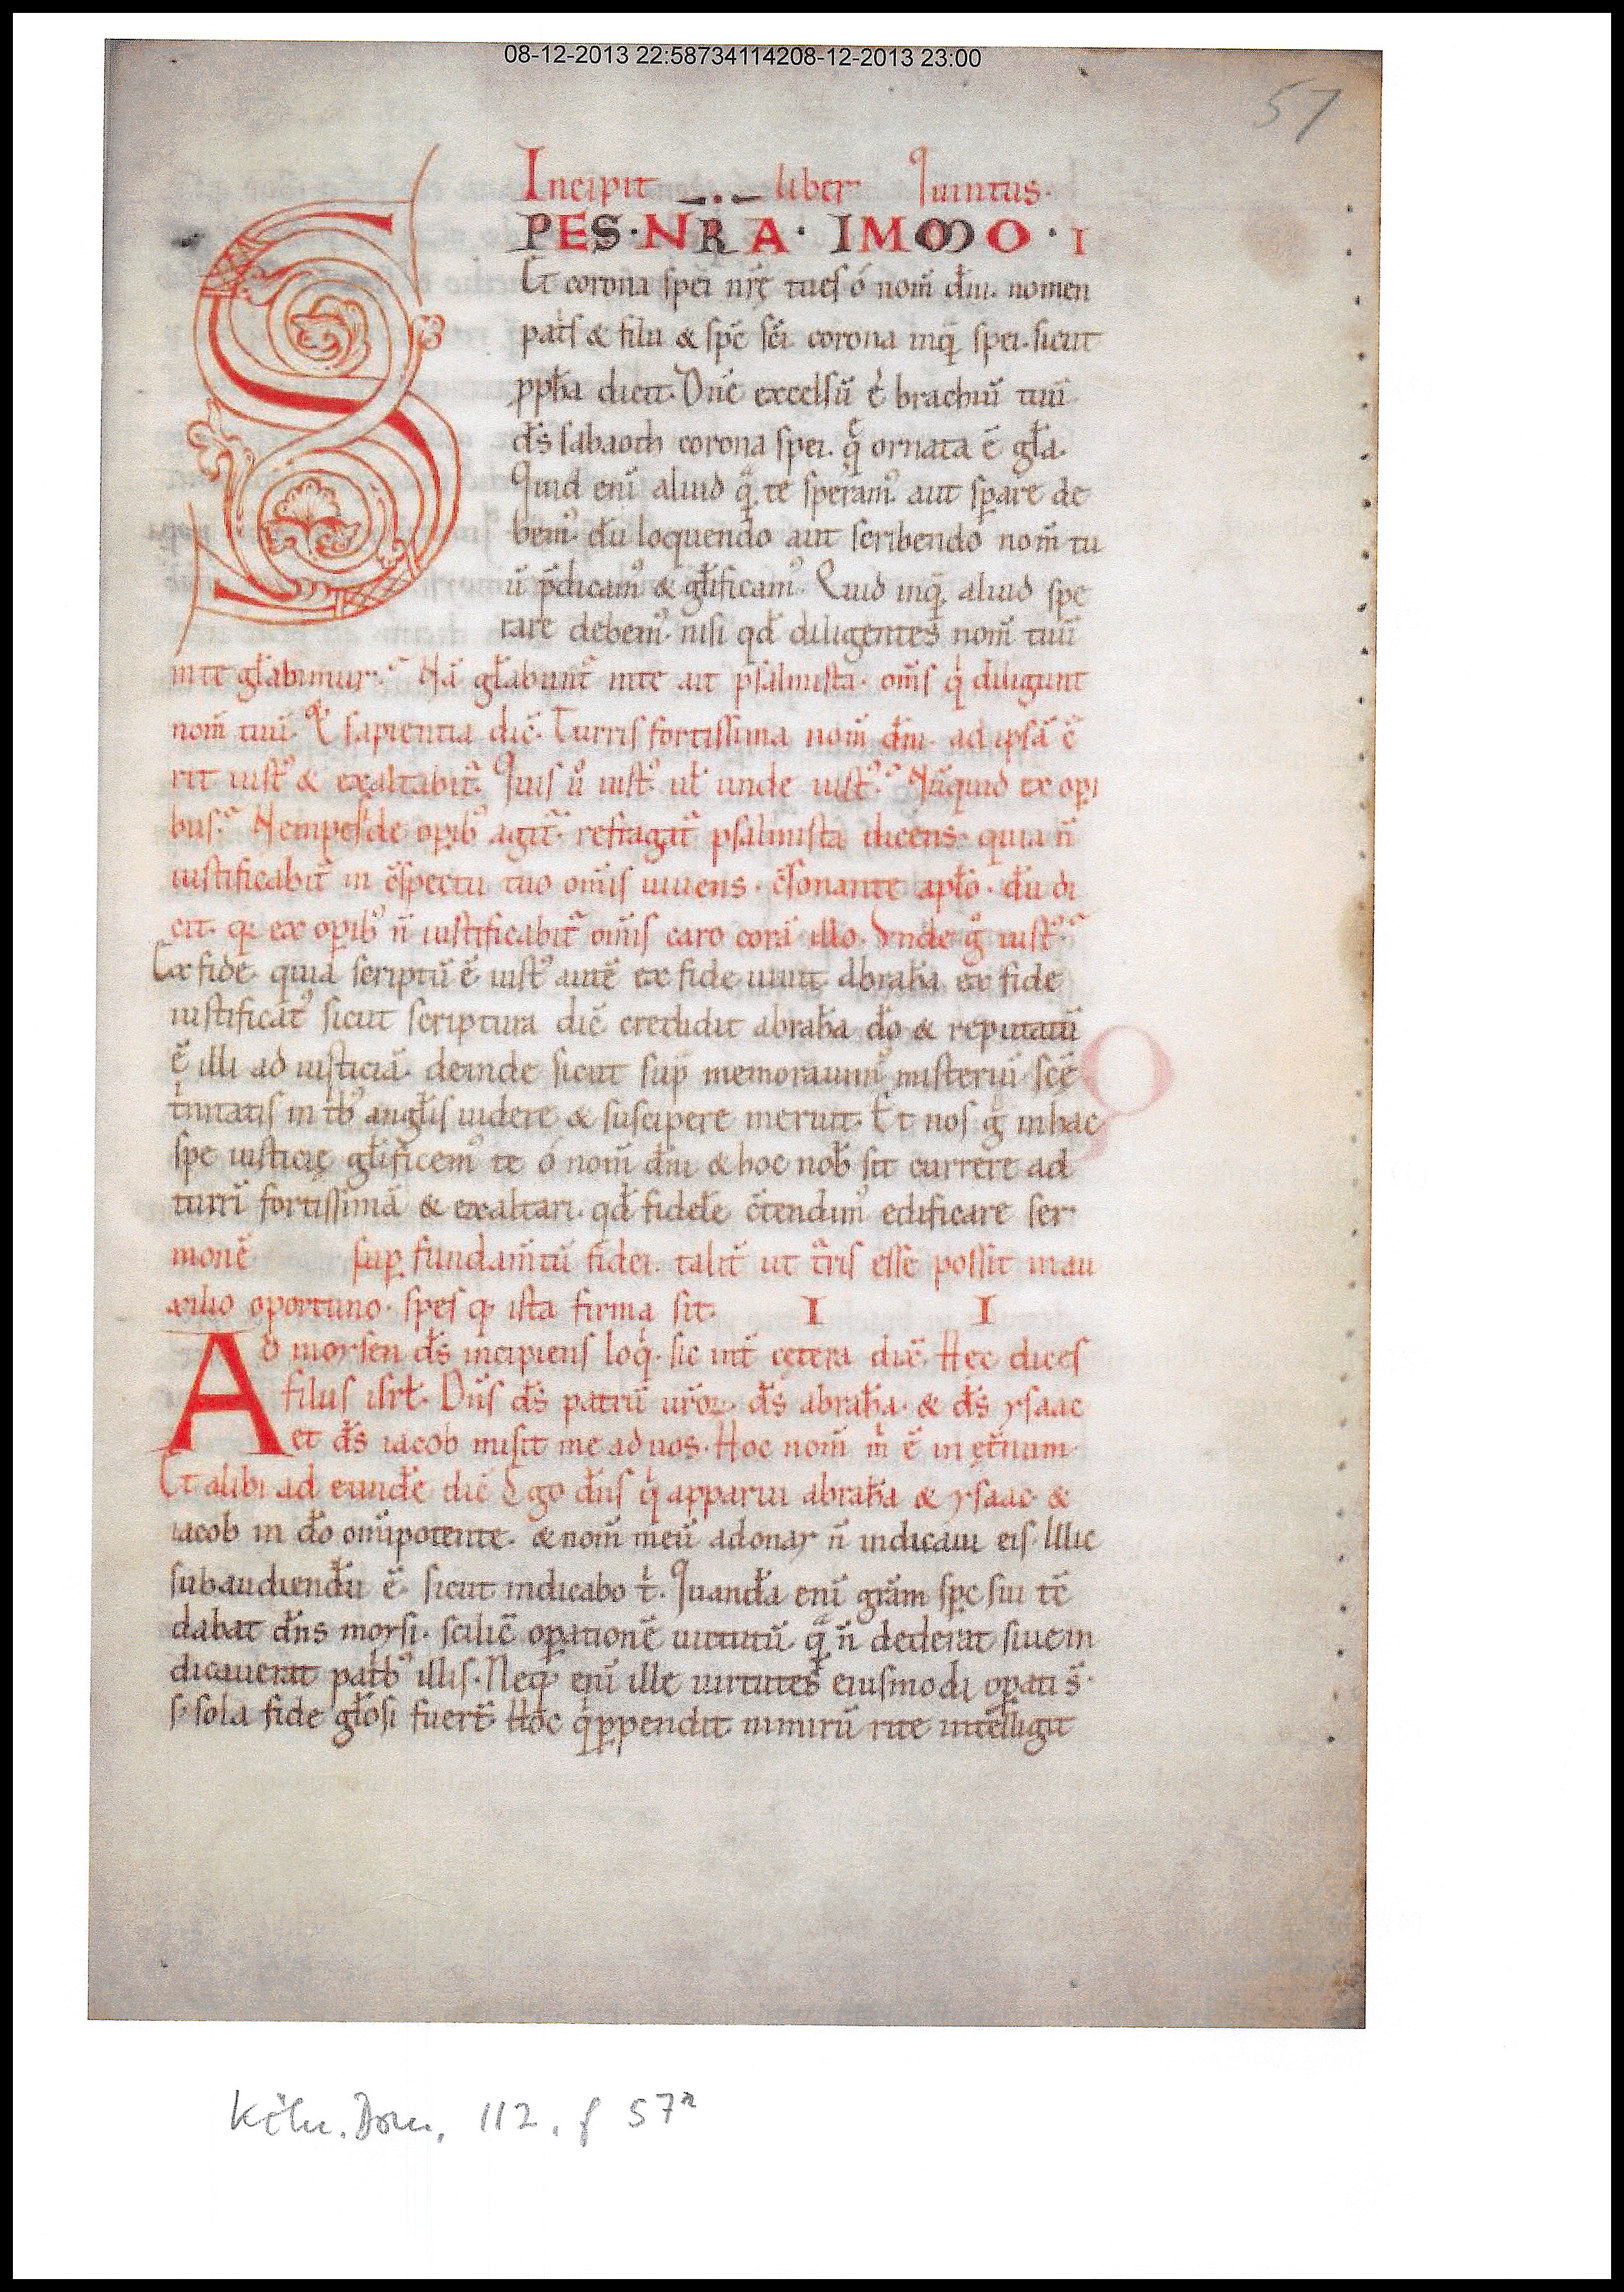 08-12-2013 22:58734114208-12-2013 23:00
57
Incipit liber Quintus.
SPES·NR̄A·IMMO·I
Et corona spei nrę̄ tu es ó nom̄ dn̄i. nomen
pat̄s & filii & sp̄c sc̄i. corona inq̄ spei. sicut
ꝓpħa dicit. Dn̄e excelsū ē brachiū tuū
d̄s sabaoth corona spei. q̄ ornata ē gła.
Quid enī aliud q̄ te speram᾽ aut sꝑare de
bem᾽ dū loquendo aut scribendo nom̄ tu
ū p̄dicam᾽ & głificam᾽. Quid inq̄ aliud spe
rare debem᾽ nisi qđ diligentes nom̄ tuū
in te głabimur? Nā głabunt̄ in te ait psalmista. om̄s q̄ diligunt
nom̄ tuū. Et sapientia dic̄. Turris fortissima nom̄ dn̄i. ad ipsā c̄
rit iust᾽ & exaltabit̄. Quis ů iust᾽. uł unde iust᾽? Nūquid ex oꝑi
bus? Nempe si de oꝑib᾽ agit̄. refragat̄ psalmista dicens. quia n̄
iustificabit̄ in c̄spectu tuo om̄is uiuens. c̄sonante apło. dū di
cit. q̄ ex oꝑib᾽ n̄ iustificabit̄ om̄is caro corā illo. Unde g̊ iust᾽?
Ex fide. quia scriptū ē iust᾽ autē ex fide uiuit. Abrahā ex fide
iustificat᾽ sicut scriptura dic̄ credidit abrahā dō & reputatū
ē illi ad iusticiā. deinde sicut sup̄ memorauim᾽ misteriū sc̄ę
t̄nitatis in t̄b᾽ angłis uidere & suscipere meruit. Et nos g̊ in hac
spe iusticię głificem᾽ te ó nom̄ dn̄i & hoc nob̄ sit currere ad
turrī fortissimā & exaltari. qđ fidelē c̄tendim᾽ edificare ser
monē sup̄ fundam̄tū fidei. talit̄ ut t̄ris esse possit in au
xilio oportuno. spes q̄ ista firma sit. I I
Ad moysen d̄s incipiens loq̄. sic int̄ cętera dic̄. Hęc dices
filiis isrł. Dn̄s d̄s patrū uroꝝ. d̄s abrahā. & d̄s ysaac
et d̄s iacob misit me ad uos. Hoc nom̄ m̄ ē in ęt̄num.
Et alibi ad eundē dic̄ Ego dn̄s q̄ apparui abrahā & ysaac. &
iacob in dō om̄ipotente. & nom̄ meū adonay n̄ indicaui eis. Illic
subaudiendū ē. sicut indicabo t̄. Quandā enī grām sp̄c sui tc̄
dabat dn̄s moysi. scilic̄ oꝑationē uirtutū q̄ n̄ dederat siue in
dicauerat pat̄b᾽ illis. Neq̄ enī ille uirtutes eiusmodi oꝑati s̄.
s; sola fide głosi fuer̄t. Hoc q̄ ꝑpendit nimirū rite intelligit
Köln. Dom. 112. f 57r